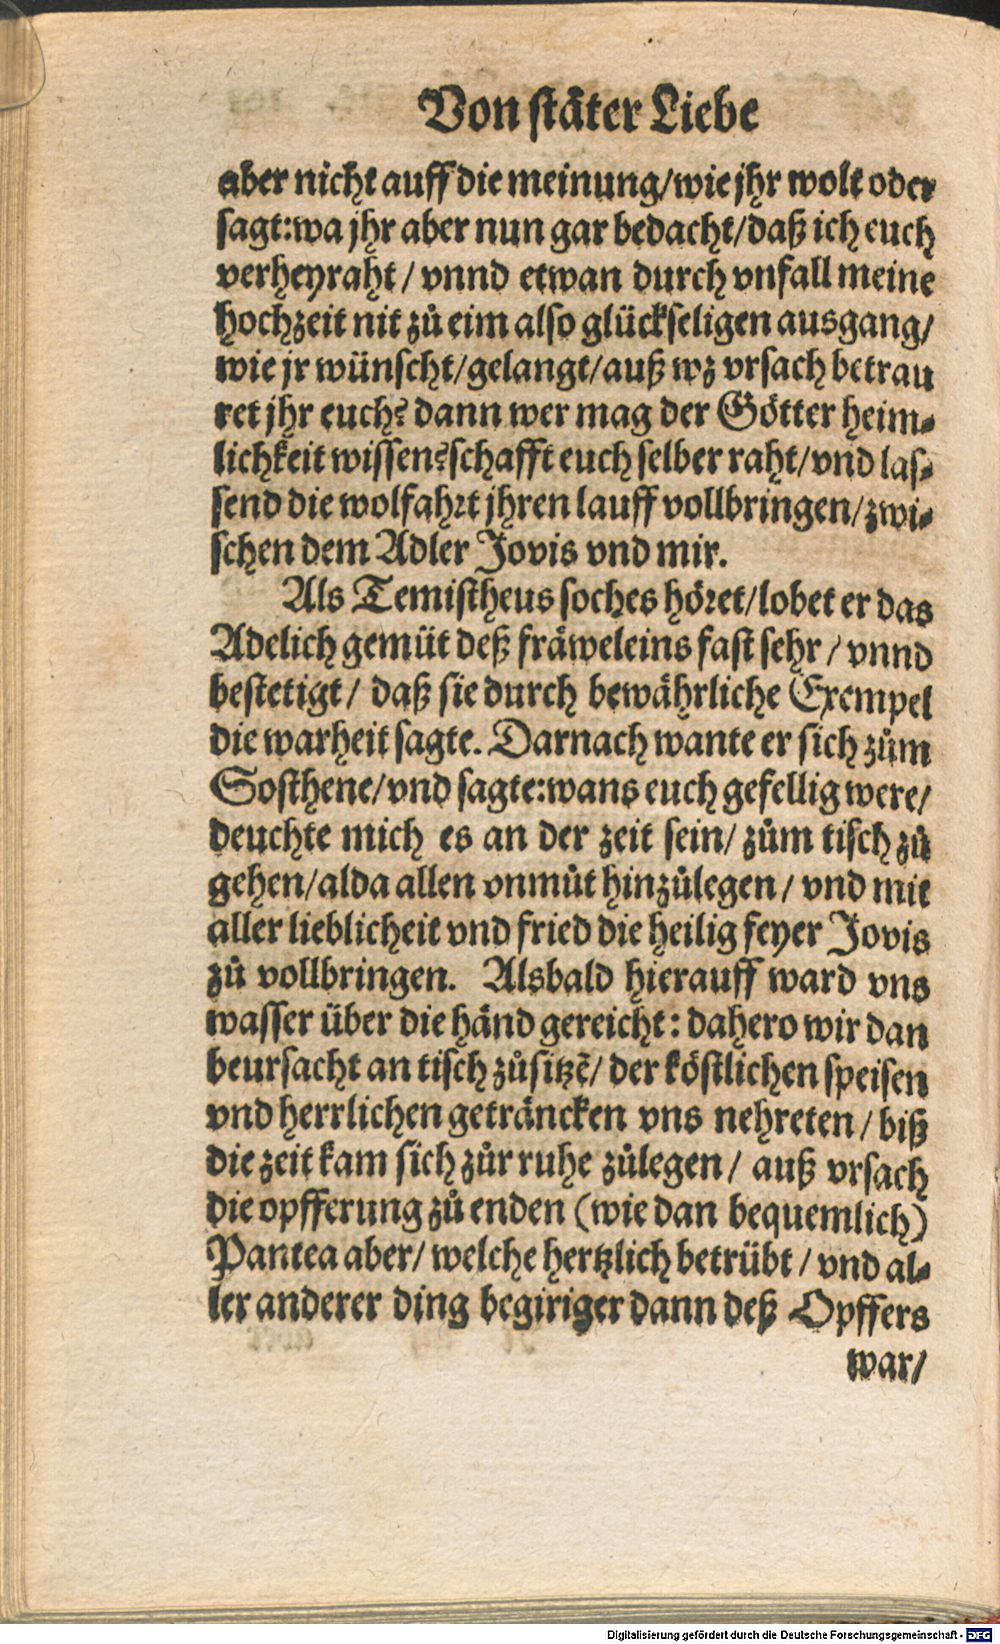 Von stäter Liebe
aber nicht auff die meinung/wie jhr wolt oder
sagt:wa jhr aber nun gar bedacht/daß ich euch
verheyraht / vnnd etwan durch vnfall meine
hochzeit nit zů eim also glückseligen ausgang/
wie jr wünscht/gelangt/auß wz vrsach betrau
ret jhr euch? dann wer mag der Götter heim-
lichkeit wissen?schafft euch selber raht/vnd las-
send die wolfahrt jhren lauff vollbringen/zwi-
schen dem Adler Jovis vnd mir.
Als Temistheus soches höret/lobet er das
Adelich gemüt deß fräweleins fast sehr / vnnd
bestetigt/ daß sie durch bewährliche Exempel
die warheit sagte. Darnach wante er sich zům
Sosthene/vnd sagte:wans euch gefellig were/
deuchte mich es an der zeit sein/ zům tisch zů
gehen/alda allen vnmůt hinzůlegen / vnd mit
aller lieblicheit vnd fried die heilig feyer Jovis
zů vollbringen. Alsbald hierauff ward vns
wasser über die händ gereicht: dahero wir dan
beursacht an tisch zůsitzē/ der köstlichen speisen
vnd herrlichen geträncken vns nehreten / biß
die zeit kam sich zůr ruhe zůlegen / auß vrsach
die opfferung zů enden (wie dan bequemlich)
Pantea aber/ welche hertzlich betrübt / vnd al-
ler anderer ding begiriger dann deß Opffers
war/
Digitalisierung gefördert durch die Deutsche Forschungsgemeinschaft - DFG